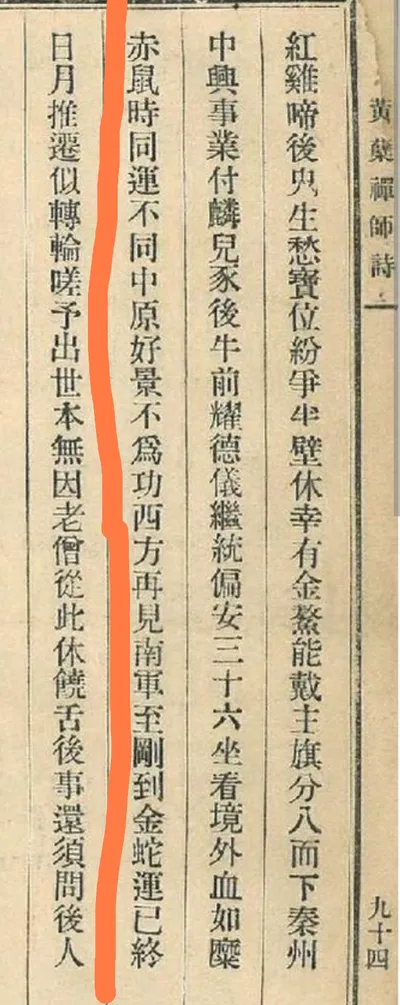 黃蘗禪師詩
九十四
紅雞啼後鬼生愁寶位紛爭半壁休幸有金鰲能戴主旗分八而下秦州
中興事業付麟兒豕後牛前耀德儀繼統偏安三十六坐看境外血如糜
赤鼠時同運不同中原好景不爲功西方再見南軍至剛到金蛇運已終
日月推遷似轉輪嗟予出世本無因老僧從此休饒舌後事還須問後人